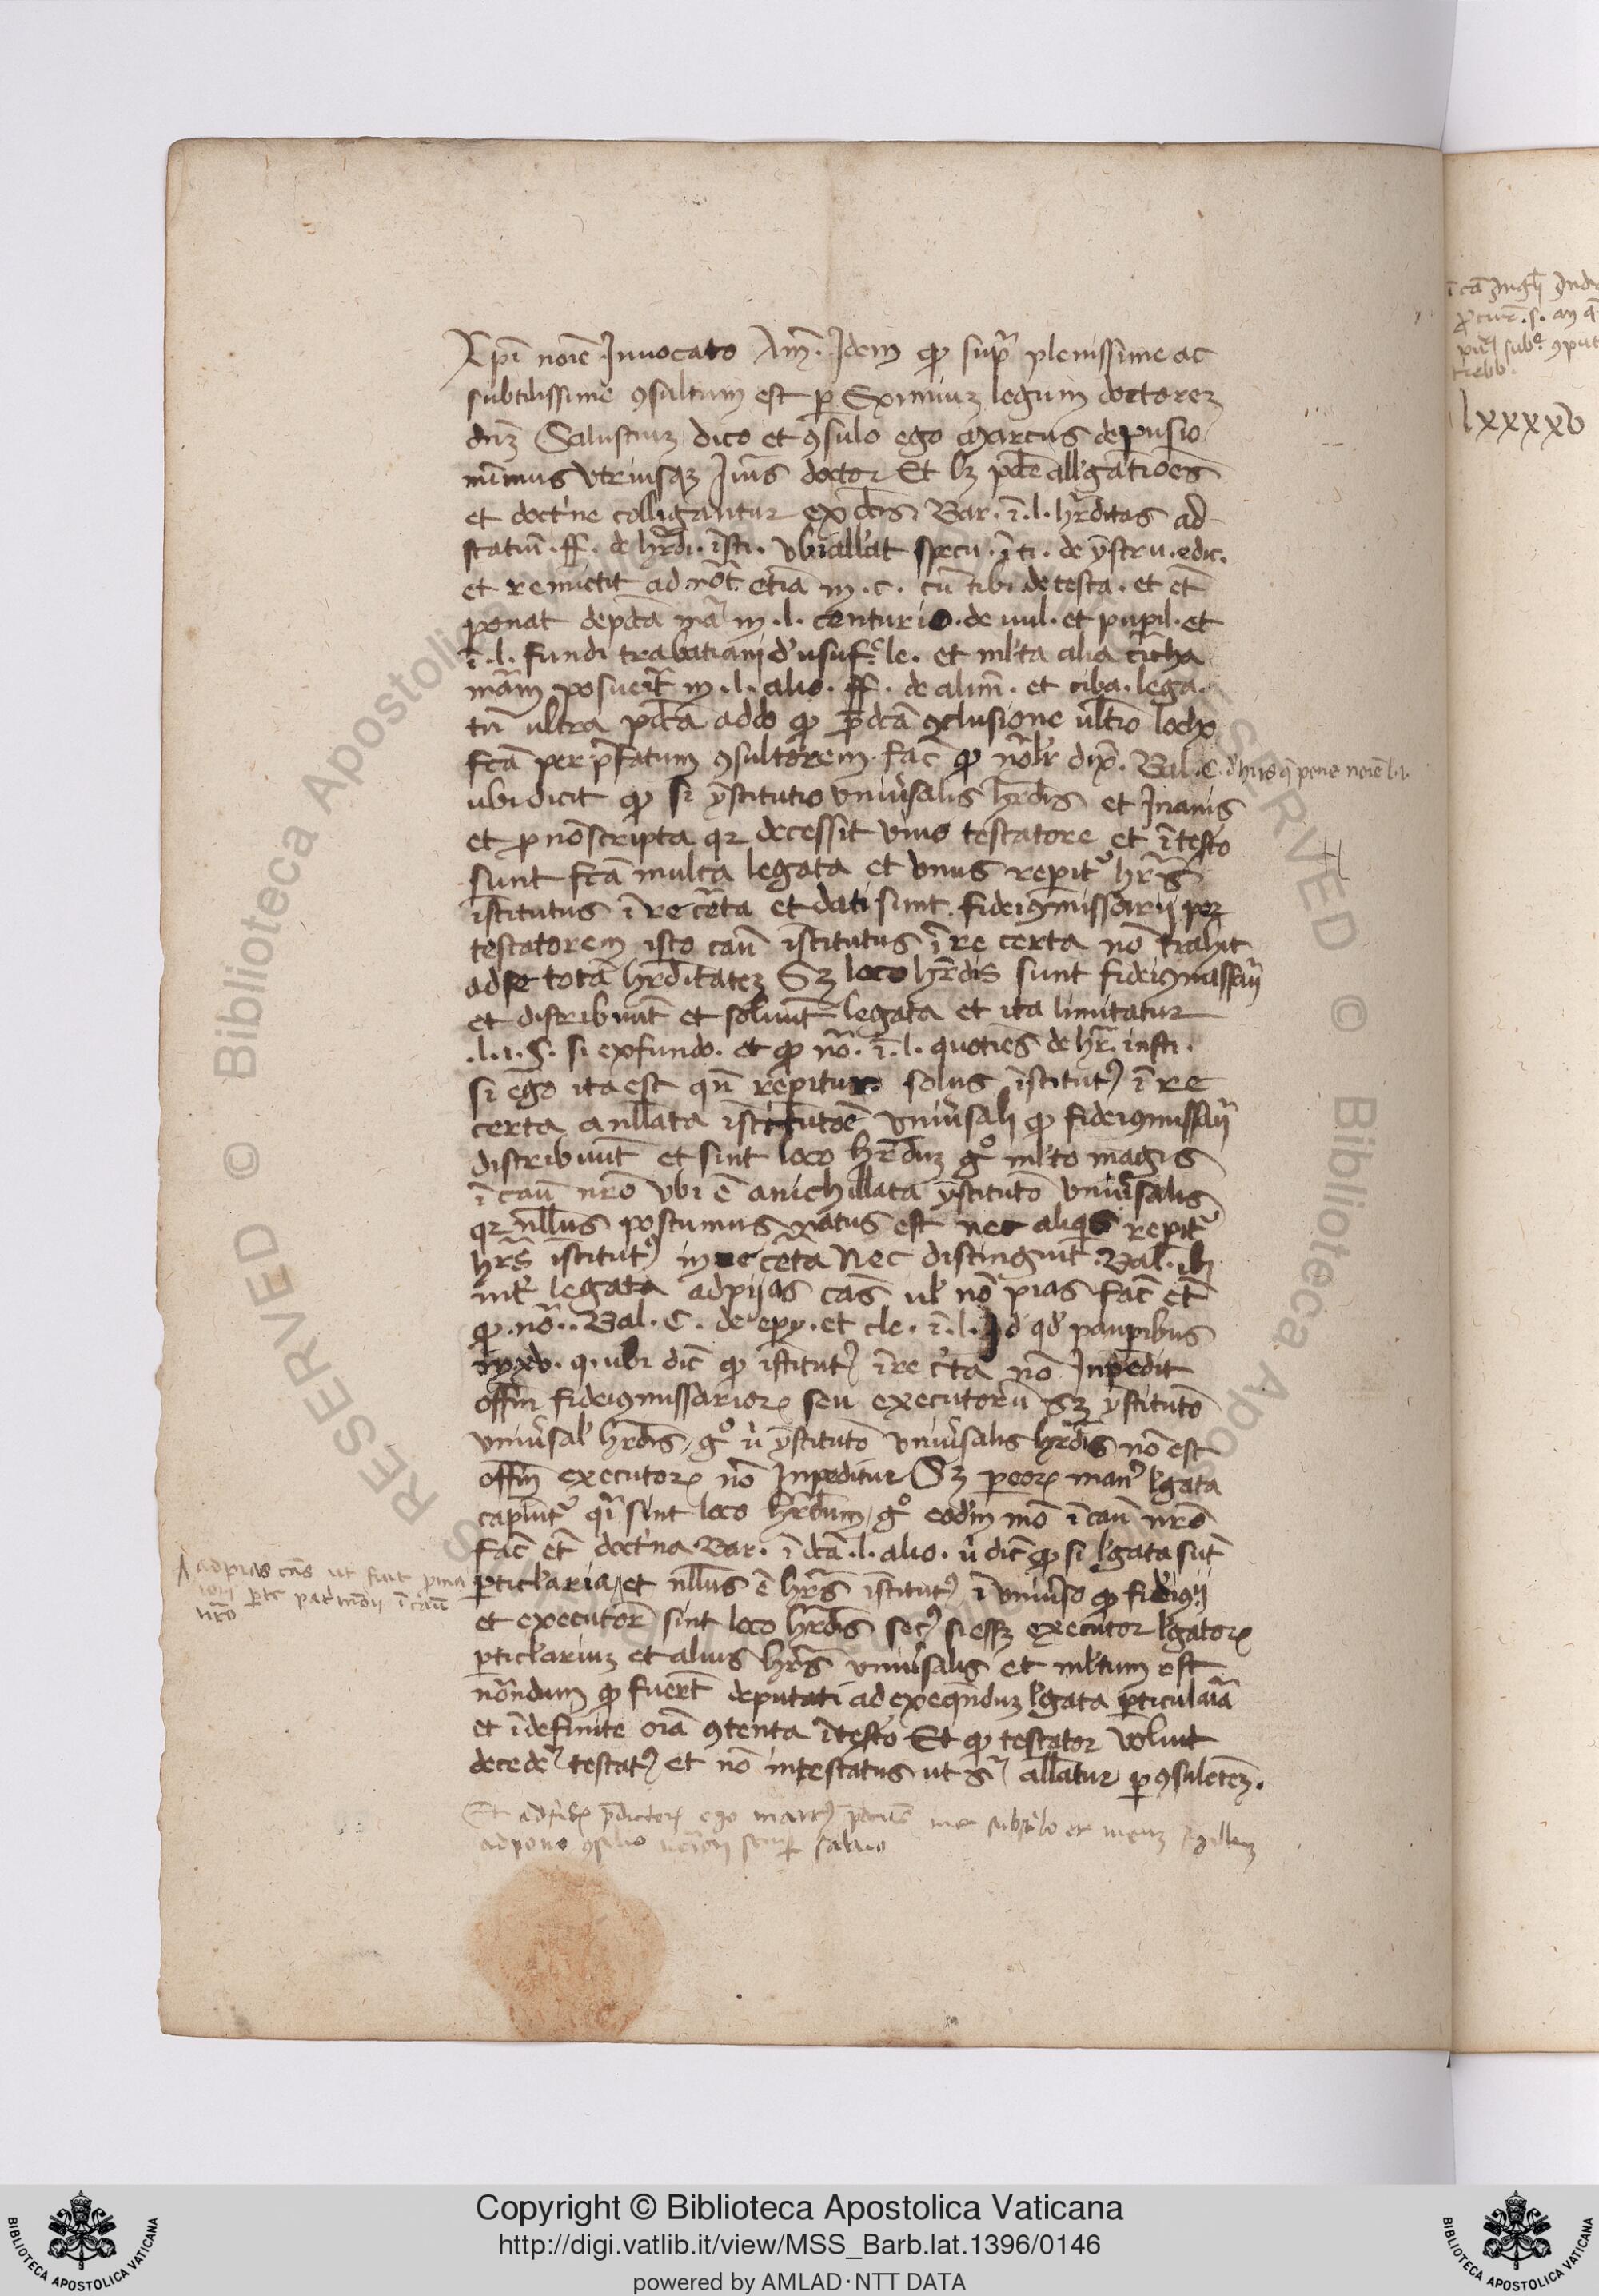 Xp̄i noīe Invocato Am̄. Idem qđ sup̄ plenissime ac
subtilissime ꝯsultum est p̱ Eximiuꝫ legum doctoreꝫ
dn̄ꝫ Salustiuꝫ dico et ꝯsulo ego Marcus de
minimus vtriusqꝫ Iuris doctor Et lꝫ pdc̄e all'gatiōes
et doct'ne colligantur ex dc̄is Bar. ī. l. hr̄ditas ad
statiū. ff. de hr̄di. īsti. vbi all'at specu. ī ti. de ȳstru. edic.
et remictit ad not̄ etiā in . c . cū tibi de testa. et et̄
ponat de pdc̄a mā in . l. centurio. de vul. et pupil. et
ī. l. fundi trabatiani d' usuf. le. et ml'ta alia circha
mām posuer̄t in . l. alio. ff. de alim̄. et ciba. lega.
tn̄ ultra pdc̄a addo qđ p̄dcā ꝯclusione ultīo locho
fc̄ā per p̄fatum ꝯsultorem. fac̄ qđ nōl'r dix̄. Bal. C. d' hijs q̄ pene noīe l. 1.
ubi dicit qđ si ȳstitutio vniu'salis hr̄dis et Inanis
et p nō scripta qr decessit viuo testatore et ī testo
sunt fc̄a multa legata et vnus repit' hr̄s
īstitutus ī re c̄eta et dati sunt fideiꝯmissarij per
testatorem isto casu īstitutus ī re certa nō trahit
ad se totā hr̄ditateꝫ Sꝫ loco hr̄dis sunt fideiꝯmissarij
et distribuūt et soluūt legata et ita limitatur
.l. 1. §. si ex fundo. et qđ nō. ī. l. quotiēs de hr̄. insti.
si ergo ita est qn̄ repitur solus īstitut' ī re
certa anllata īstitutoē vniu'sali qđ fideiꝯmissarij
distribuūt et sint loco hr̄duꝫ g° ml'to magis
ī casu nr̄o vbi ē anichillata ȳstitutō vniu'salis
qr nllus postumus natus est nec aliqs repit'
hr̄s īstitut' in re c̄eta Nec distinguit. Bal. ibi
int' legata ad pijas cās ul' nō pias fac̄ et̄
qđ nō.. Bal. C. de epy. et cle. ī. l. Id qđ paup̱ibus
q. ubi dic̄ qđ īstitut' ī re c'ta nō Inpedit
offm̄ fideiꝯmissarioꝝ seu executorū sꝫ ȳstitutō
vniu'sal' hr̄dis, g° u' ȳstitutō vniu'salis hr̄dis nō est
offm̄ executoꝝ nō Inpeditur Sꝫ p̱ eoꝝ man' l'gata
capiūt' qi sint loco hr̄dum, g° eod'm mō ī casu nr̄o
fac̄ et̄ doct'na Bar. ī dc̄a. l. alio. u' dic̄ qđ si l'gata sūt
p̱ticl'aria, et nllus ē hr̄s īstitut' ī vniu'so qđ fideiꝯij
et executor̄ sint loco hr̄dis sec' si esseꝫ executor l'gatoꝝ
p̱ticl'ariuꝫ et alius hr̄s vniu'salis et ml'tum est
nōndum qđ fuer̄t deputati ad exeq̄nduꝫ l'gata p̱ticularia
et īdefinite oīa ꝯtenta ī testo Et qđ testator voluit
deceder' testat' et nō intestatus ut s' allatur p̱ ꝯsuletēꝫ.
Et ad fidē p̄dictoꝝ ego marc' me subscribo et meuꝫ sigilluꝫ
adpono ꝯsilio semp̱ saluo
ad pias cās ut fuit
p̱te pat'mōij ī casu
nr̄o
lxxxxv
Copyright © Biblioteca Apostolica Vaticana
http://digi.vatlib.it/view/MSS_Barb.lat.1396/0146
powered by AMLAD·NTT DATA
BIBLIOTECA APOSTOLICA VATICANA
BIBLIOTECA APOSTOLICA VATICANA